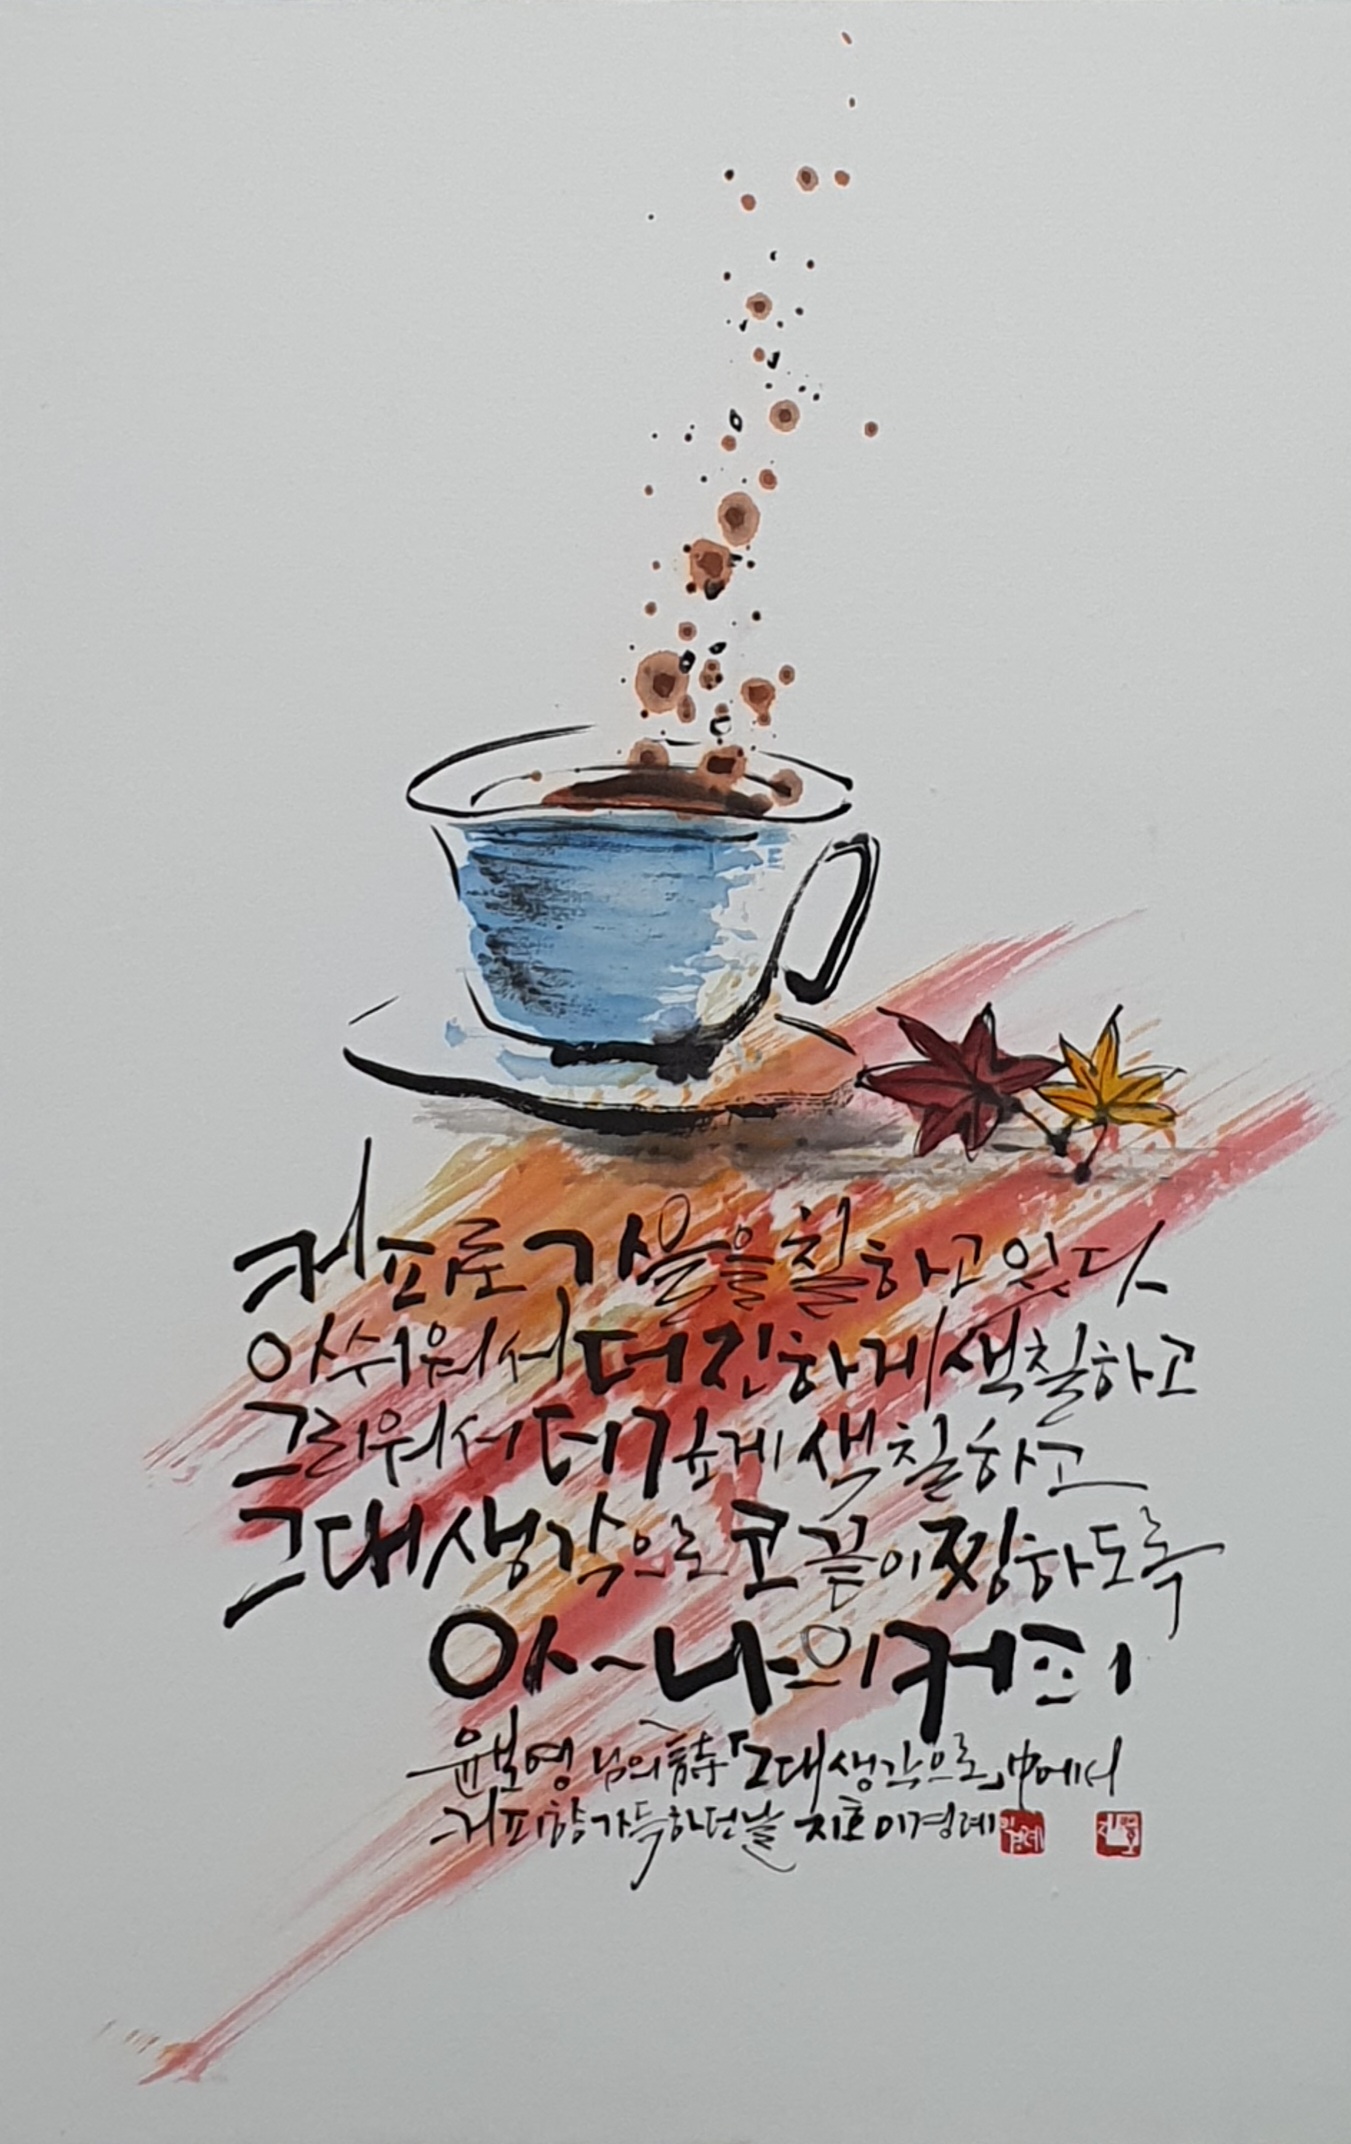 커피로 가을을 칠하고 있다
아쉬워서 더 진하게 색칠하고
그리워서 더 깊게 색칠하고
그대 생각으로 코끝이 찡하도록
아~ 나의 커피
윤보영 님의 詩「그대 생각으로」中에서
커피향 가득하던 날 지호 이경례
이경례
지호